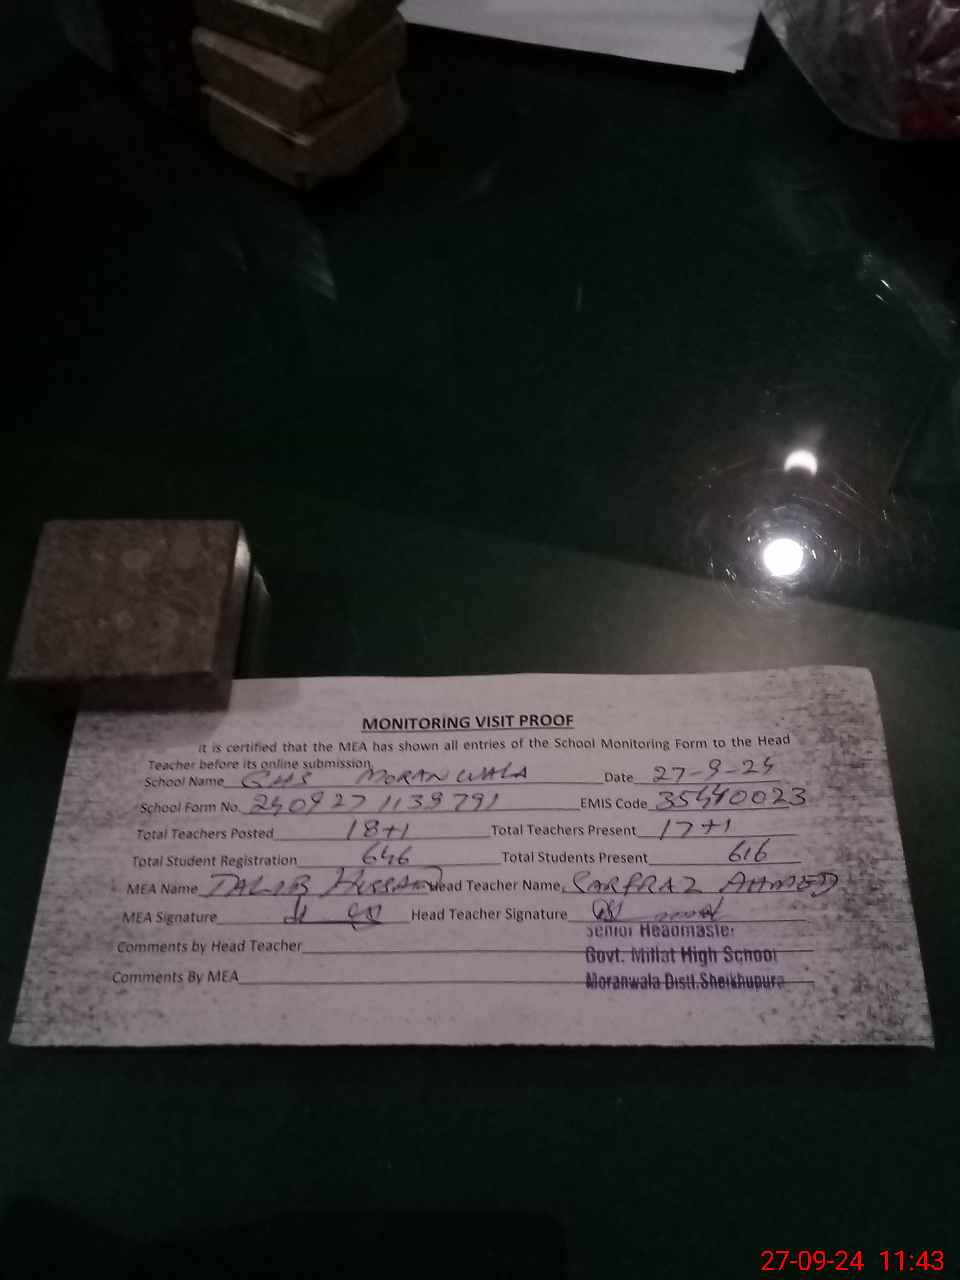 MONITORING VISIT PROOF
It is certified that the MEA has shown all entries of the School Monitoring Form to the Head
Teacher before its online submission.
School Name GHS MORANWALA Date 27-9-24
School Form No. 2409271139791 EMIS Code 35440023
Total Teachers Posted 18+1 Total Teachers Present 17+1
Total Student Registration 646 Total Students Present 616
MEA Name TALIB HUSSAIN Head Teacher Name SARFRAZ AHMED
MEA Signature Head Teacher Signature
Senior Headmaster
Comments by Head Teacher
Govt. Millat High School
Comments By MEA
Moranwala Distt.Sheikhupura
27-09-24 11:43